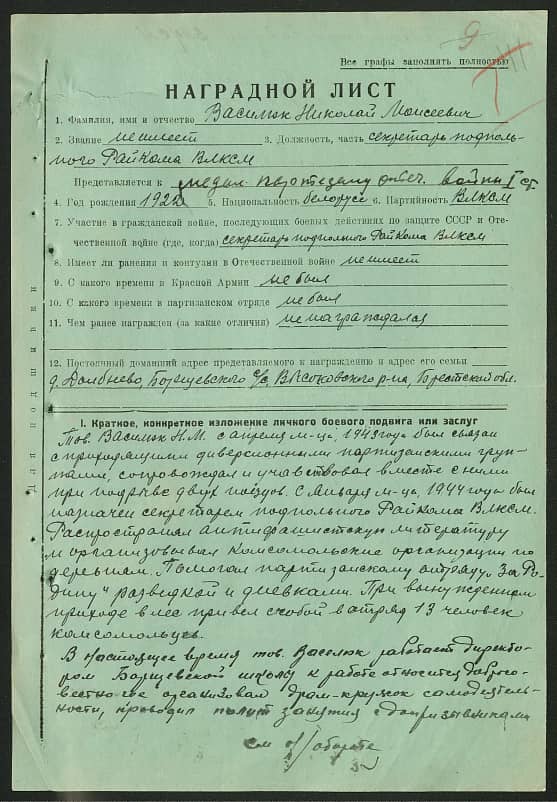 9
Все графы заполнять полностью
НАГРАДНОЙ ЛИСТ
1. Фамилия, имя и отчество Василюк Николай Моисеевич
2. Звание не имеет 3. Должность, часть секретарь подполь-
ного Райкома ВЛКСМ
Представляется к медал. партизану отеч. войны I ст.
4. Год рождения 5. Национальность белорус 6. Партийность ВЛКСМ
7. Участие в гражданской войне, последующих боевых действиях по защите СССР и Оте-
чественной войне (где, когда) секретарь подпольного Райкома ВЛКСМ
8. Имеет ли ранения и контузии в Отечественной войне не имеет
9. С какого времени в Красной Армии не был
10. С какого времени в партизанском отряде не был
11. Чем ранее награжден (за какие отличия) не награждался
12. Постоянный домашний адрес представляемого к награждению и адрес его семьи
д. Долбнево, Борщевского с/с, Высоковского р-на, Брестской обл.
Для подшивки
I. Краткое, конкретное изложение личного боевого подвига или заслуг
Тов. Василюк Н.М. с апреля м-ца, 1943 года был связан
с приходящими диверсионными партизанскими груп-
пами, сопровождал и учавствовал вместе с ними
при подрыве двух поездов. С Января м-ца, 1944 года был
назначен секретарем подпольного Райкома ВЛКСМ.
Распространял антифашистскую литературу
и организовывал комсомольские организации по
деревням. Помогал партизанскому отряду „За Ро-
дину" разведкой и дневками. При вынужденном
приходе в лес привел с собой в отряд 13 человек
комсомольцев.
В настоящее время тов. Василюк работает директо-
ром Борщевской школы к работе относится доброс-
вестно где организовал драм-кружок самодеятель-
ности, проводил полит занятия с допризывниками
см на обороте